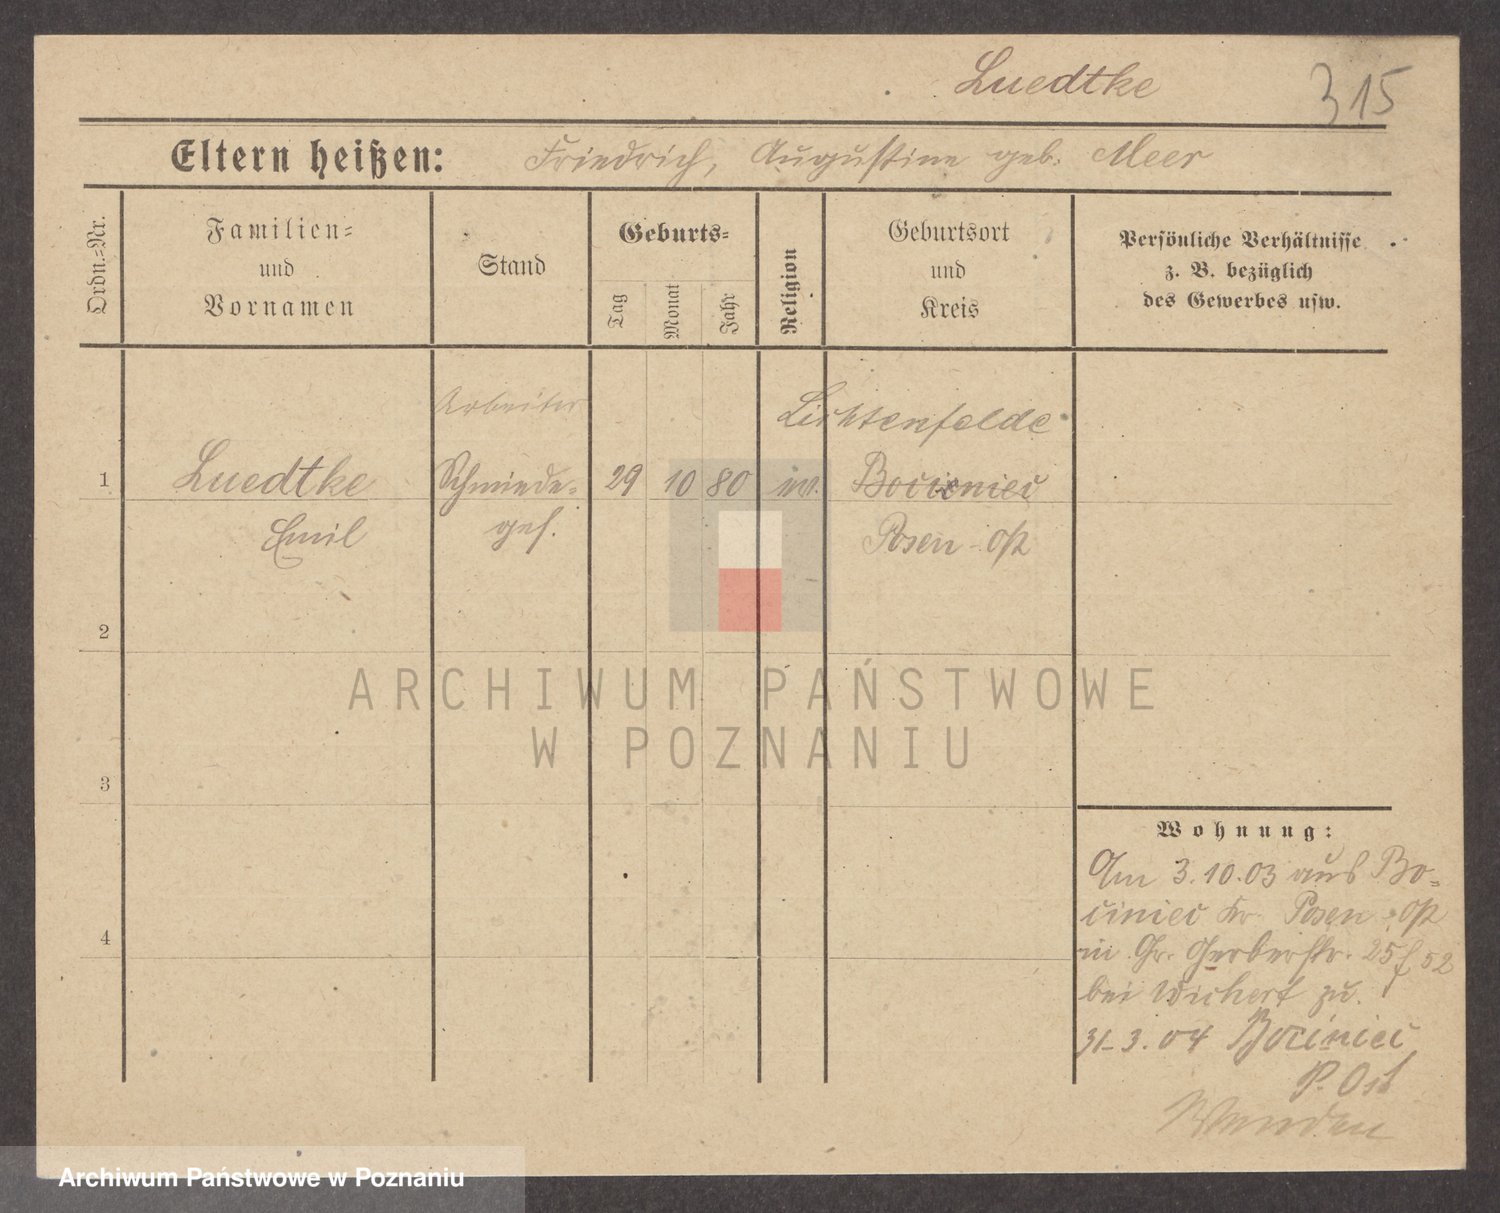 Luedtke
315
Eltern heißen: Friedrich, Augustine geb. Meer
Ordn.-Nr.
Familien-
und
Vornamen
Stand
Geburts-
Tag
Monat
Jahr
Religion
Geburtsort
und
Kreis
Persönliche Verhältnisse
z. B. bezüglich
des Gewerbes usw.
Arbeiter
Lichtenfelde
1 Luedtke Schmiede- 29 10 80 ev. Bociniec
Emil ges. Posen-Ost
2
3
4
Wohnung:
Am 3.10.03 aus Bo-
ciniec Kr. Posen-Ost
in Gr. Gerberstr. 25 f 52
bei Wichert zu.
31-3.04 Bociniec
P. Ost
ARCHIWUM PAŃSTWOWE
W POZNANIU
Archiwum Państwowe w Poznaniu